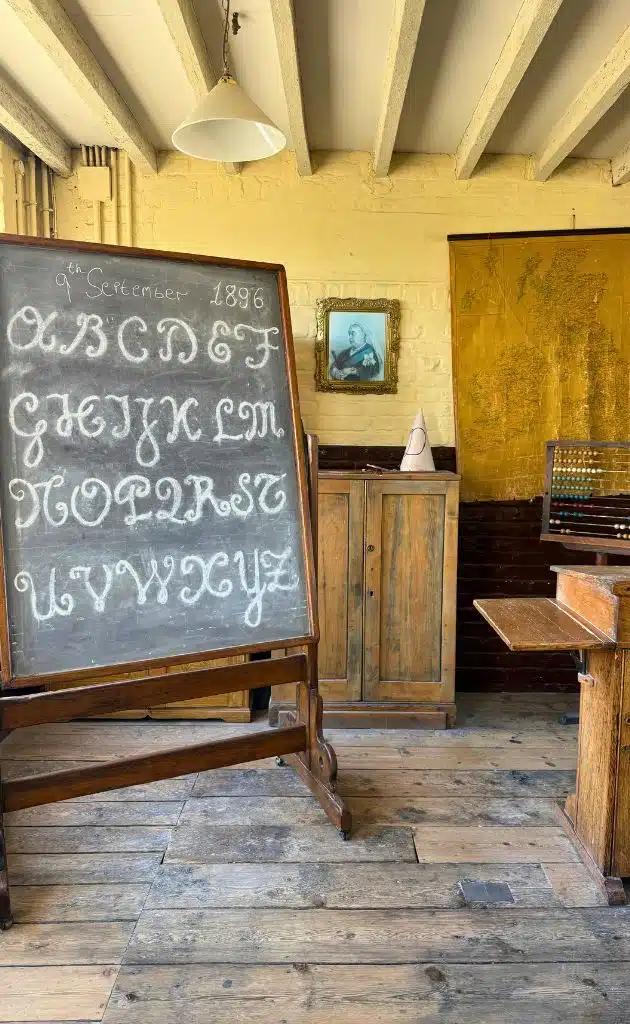 9th September 1896
ABCDEF
GHIJKLM
NOPQRST
UVWXYZ